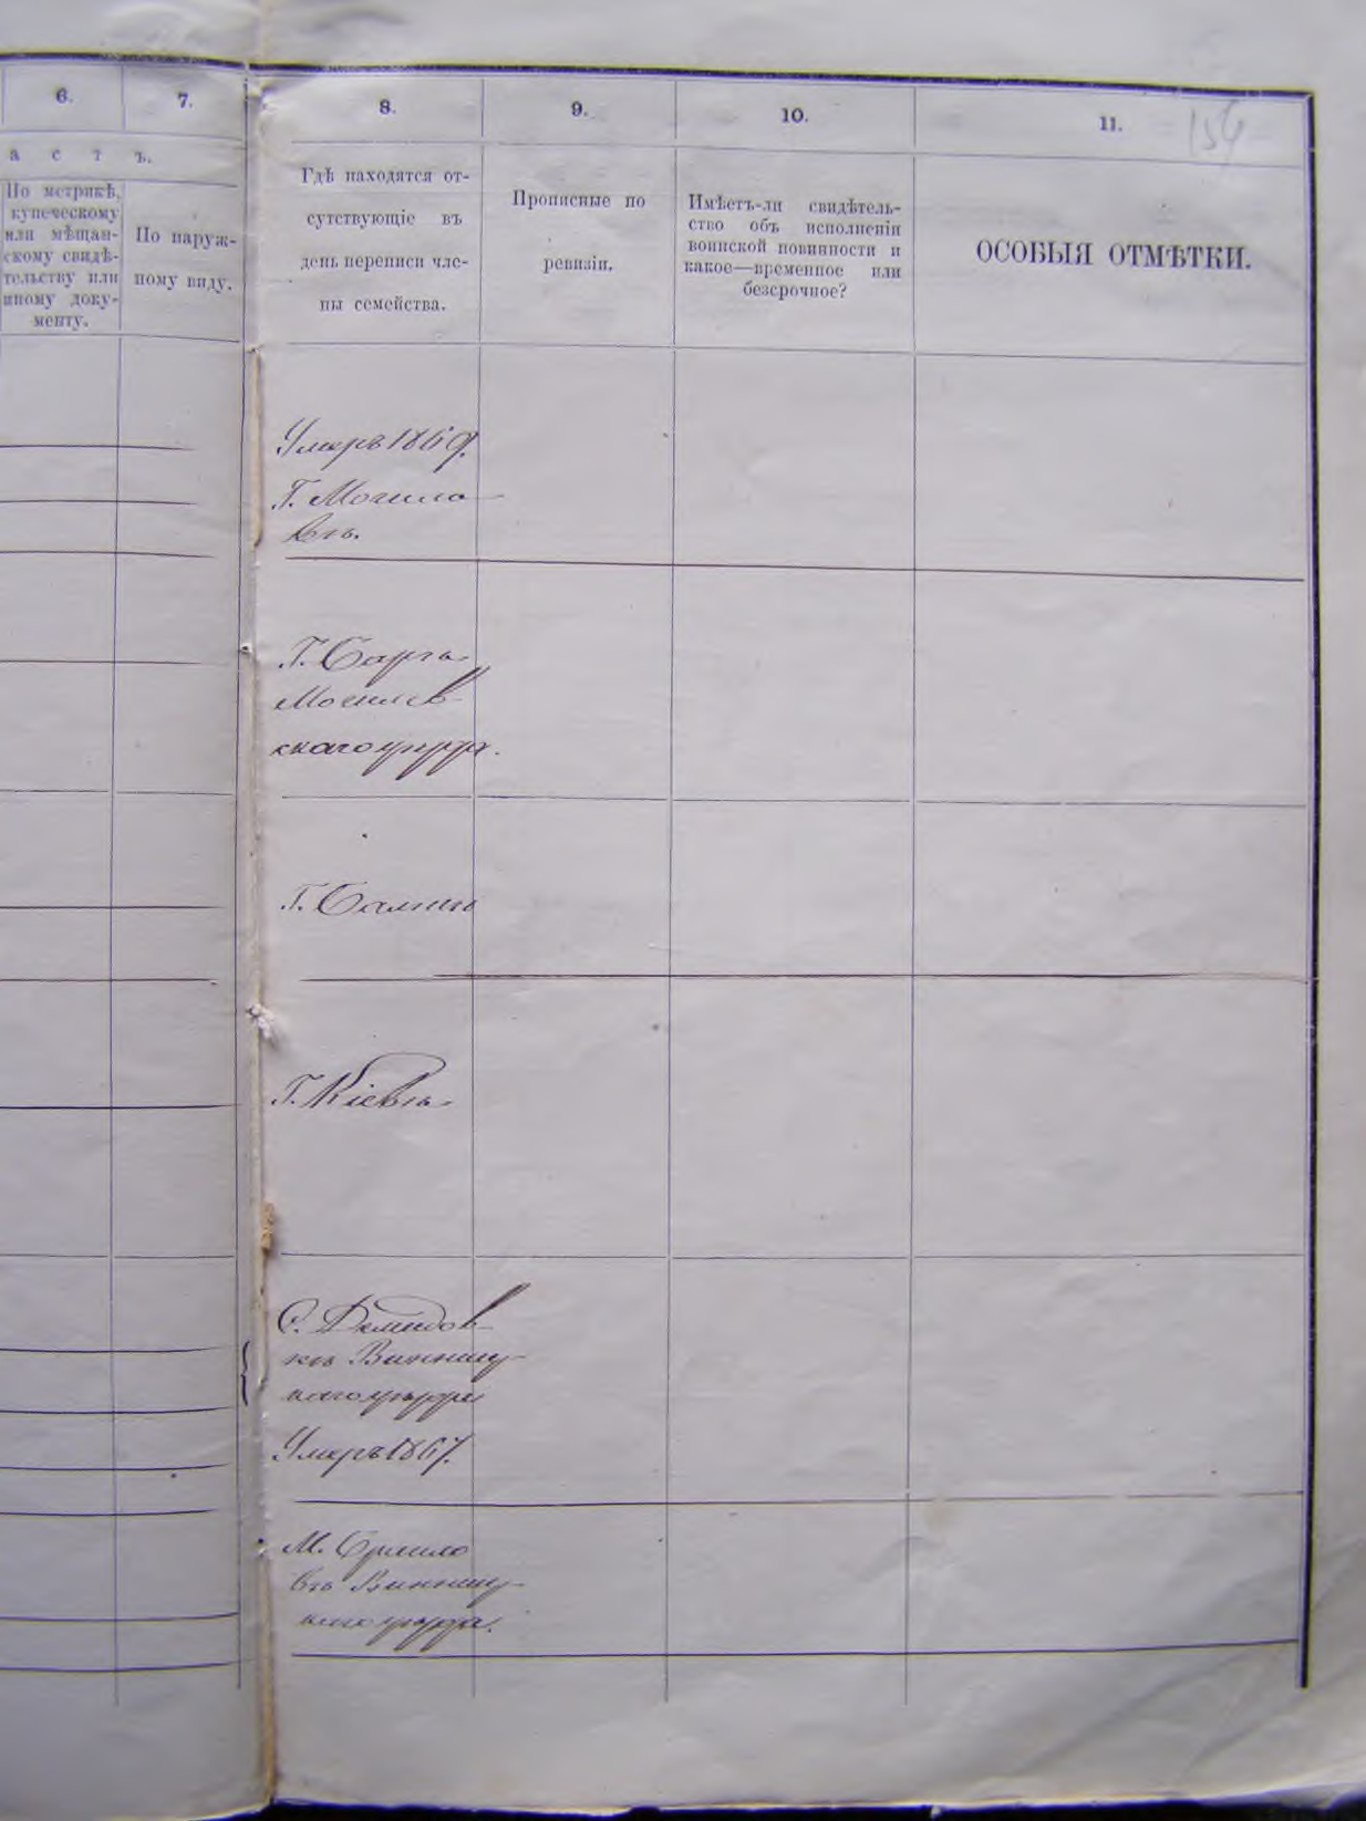 6.
7.
8.
9.
10.
11.
154
а с т ъ.
По метрикѣ,
купеческому
или мѣщан-
скому свидѣ-
тельству или
иному доку-
менту.
По наруж-
ному виду.
Гдѣ находятся от-
сутствующіе въ
день переписи чле-
ны семейства.
Прописные по
ревизіи.
Имѣетъ-ли свидѣтель-
ство объ исполненіи
воинской повинности и
какое—временное или
безсрочное?
ОСОБЫЯ ОТМѢТКИ.
Умеръ 1869.
Г. Могиле
вѣ.
Г. Барѣ
Могилев-
скаго уѣзда.
Г.
Г. Кіевѣ
С. Демидов-
кѣ Винниц-
каго уѣзда
Умеръ 1867.
М. Браило
вѣ Винниц-
каго уѣзда.